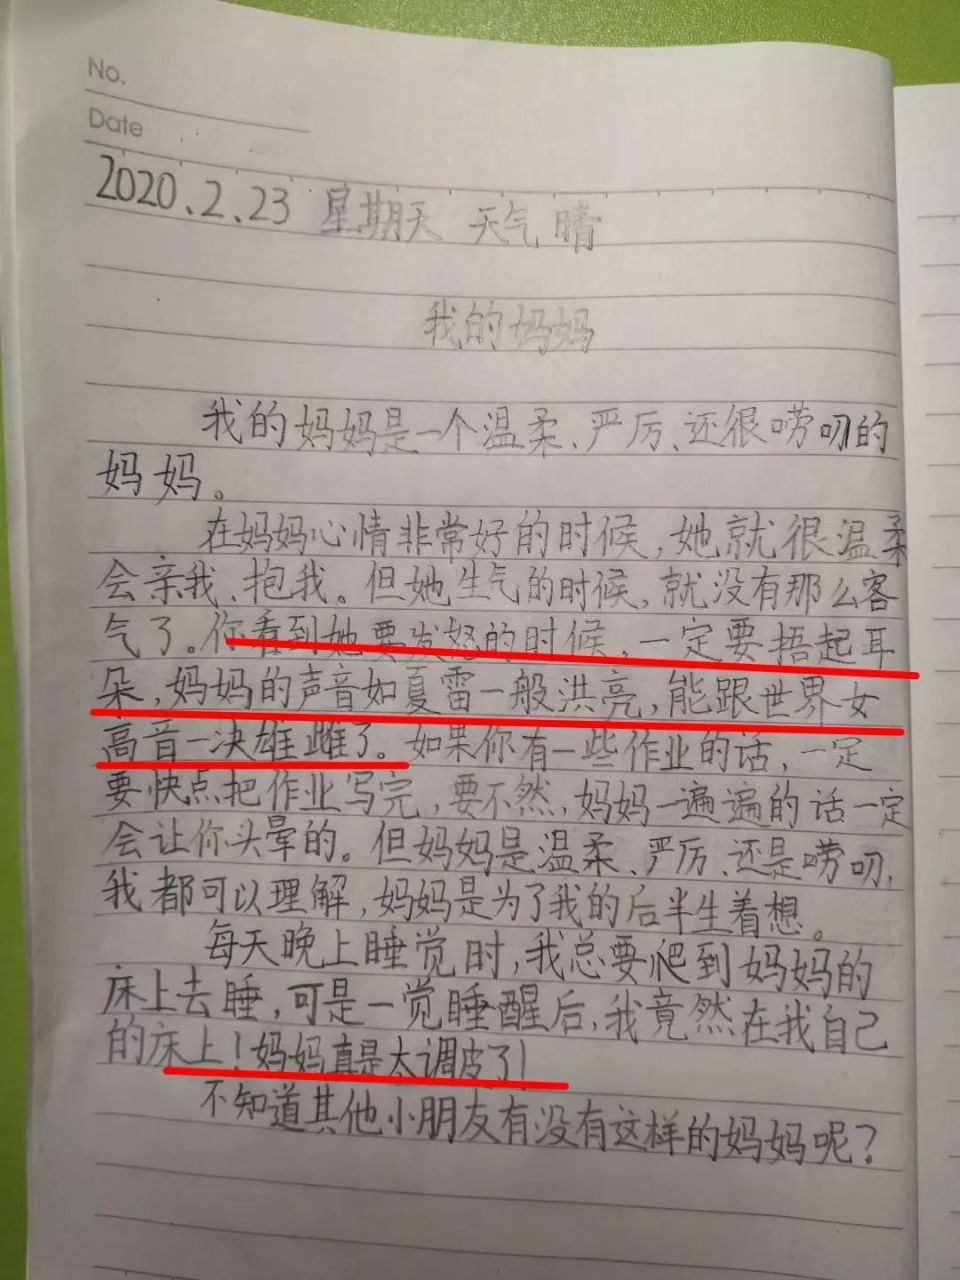 No.
Date
2020、2、23 星期天 天气晴
我的妈妈
我的妈妈是一个温柔、严厉、还很唠叨的
妈妈。
在妈妈心情非常好的时候，她就很温柔
会亲我、抱我。但她生气的时候，就没有那么客
气了。你看到她要发怒的时候，一定要捂起耳
朵，妈妈的声音如夏雷一般洪亮，能跟世界女
高音一决雄雌了。如果你有一些作业的话，一定
要快点把作业写完，要不然，妈妈一遍遍的话一定
会让你头晕的。但妈妈是温柔、严厉、还是唠叨，
我都可以理解，妈妈是为了我的后半生着想。
每天晚上睡觉时，我总要爬到妈妈的
床上去睡，可是一觉睡醒后，我竟然在我自己
的床上！妈妈真是太调皮了！
不知道其他小朋友有没有这样的妈妈呢？